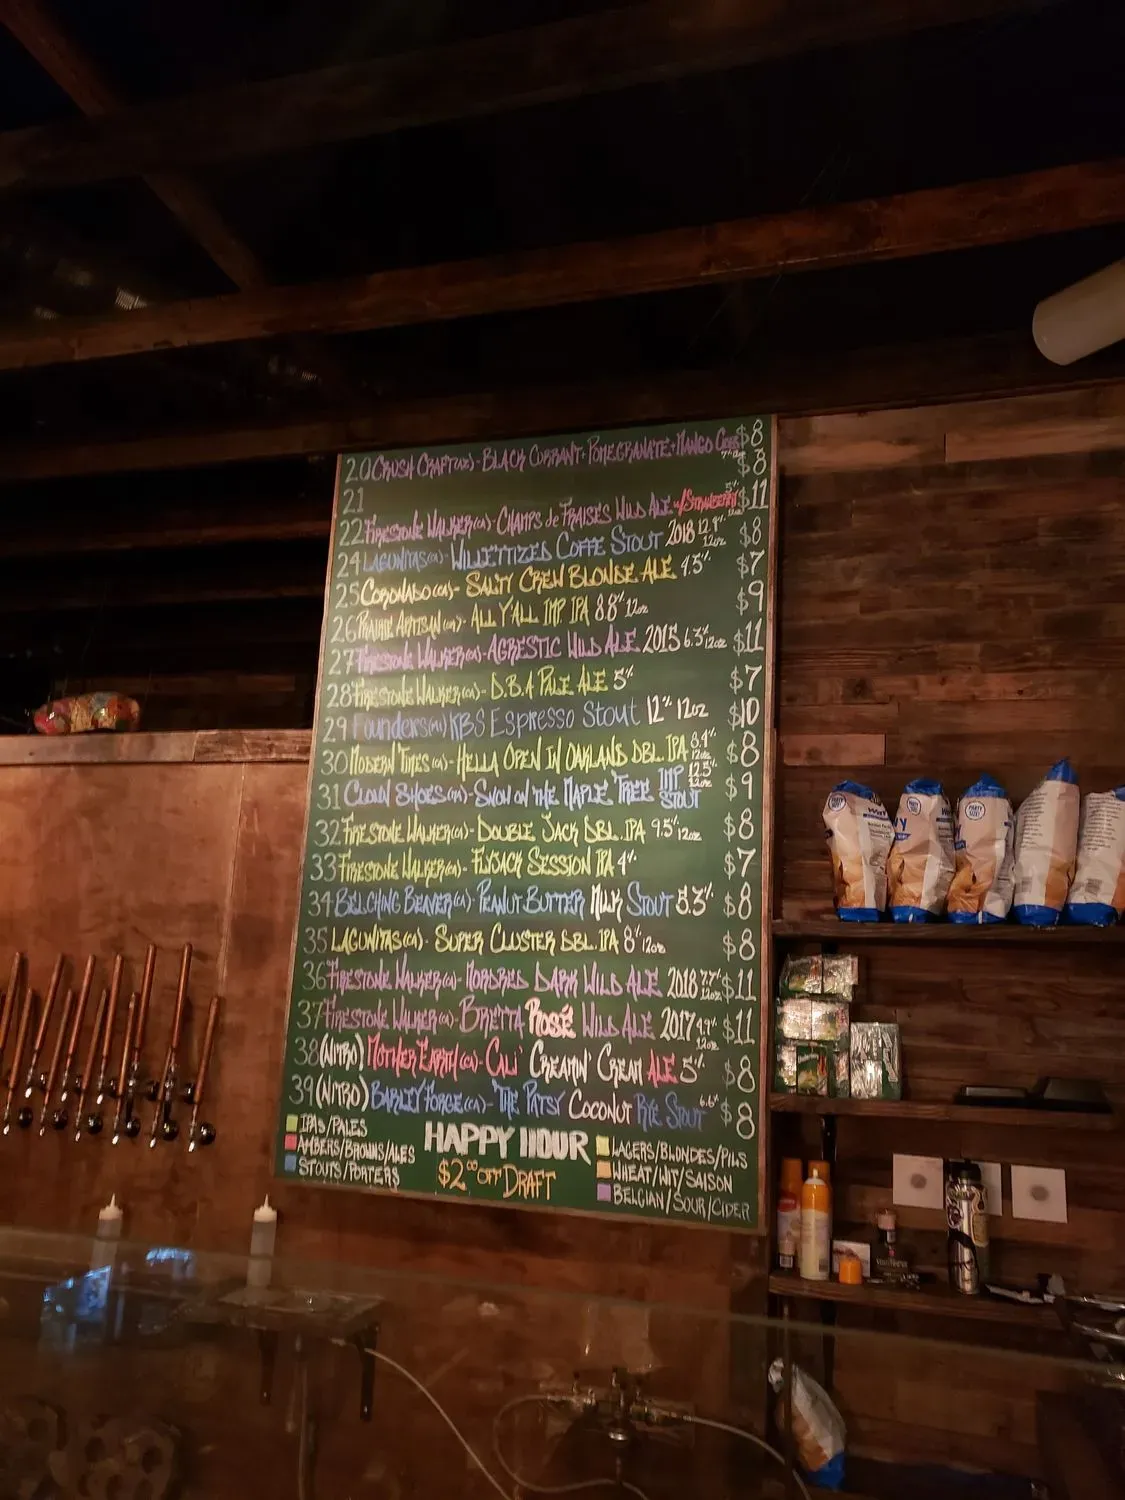 20 CRUSH CRAFT - BLACK CURRANT + POMEGRANATE + MANGO CIDER $8
21 $8
22 FIRESTONE WALKER (CA) - CHAMPS de FRAISES WILD ALE w/STRAWBERRY 5% 12oz $11
24 LAGUNITAS (CA) - WILLETTIZED COFFE STOUT 2018 12.9% 12oz $8
25 CORONADO (CA) - SALTY CREW BLONDE ALE 4.5% $7
26 PRAIRIE ARTISAN - ALL Y'ALL IMP. IPA 8.8% 12oz $9
27 FIRESTONE WALKER (CA) - AGRESTIC WILD ALE 2015 6.3% 12oz $11
28 FIRESTONE WALKER (CA) - D.B.A PALE ALE 5% $7
29 Founders KBS Espresso Stout 12% 12oz $10
30 MODERN TIMES (CA) - HELLA OPEN IN OAKLAND DBL. IPA 12oz $8
31 CLOWN SHOES - SNOW ON THE MAPLE TREE IMP STOUT 12.5% 12oz $9
32 FIRESTONE WALKER (CA) - DOUBLE JACK DBL. IPA 9.5% 12oz $8
33 FIRESTONE WALKER (CA) - FLYJACK SESSION IPA 4% $7
34 BELCHING BEAVER (CA) - PEANUT BUTTER MILK STOUT 5.3% $8
35 LAGUNITAS (CA) - SUPER CLUSTER DBL. IPA 8% 12oz $8
36 FIRESTONE WALKER (CA) - MORDRED DARK WILD ALE 2018 7.7% 12oz $11
37 FIRESTONE WALKER (CA) - BRETTA ROSÉ WILD ALE 2017 4.9% 12oz $11
38 (NITRO) MOTHER EARTH (CA) - CALI' CREAMIN' CREAM ALE 5% $8
39 (NITRO) BARLEY FORGE (CA) - 'THE PATSY COCONUT RYE STOUT 6.6% $8
IPAS/PALES
AMBERS/BROWNS/ALES
STOUTS/PORTERS
HAPPY HOUR
$2.00 OFF DRAFT
LAGERS/BLONDES/PILS
WHEAT/WIT/SAISON
BELGIAN/SOUR/CIDER
PARTY SIZE!